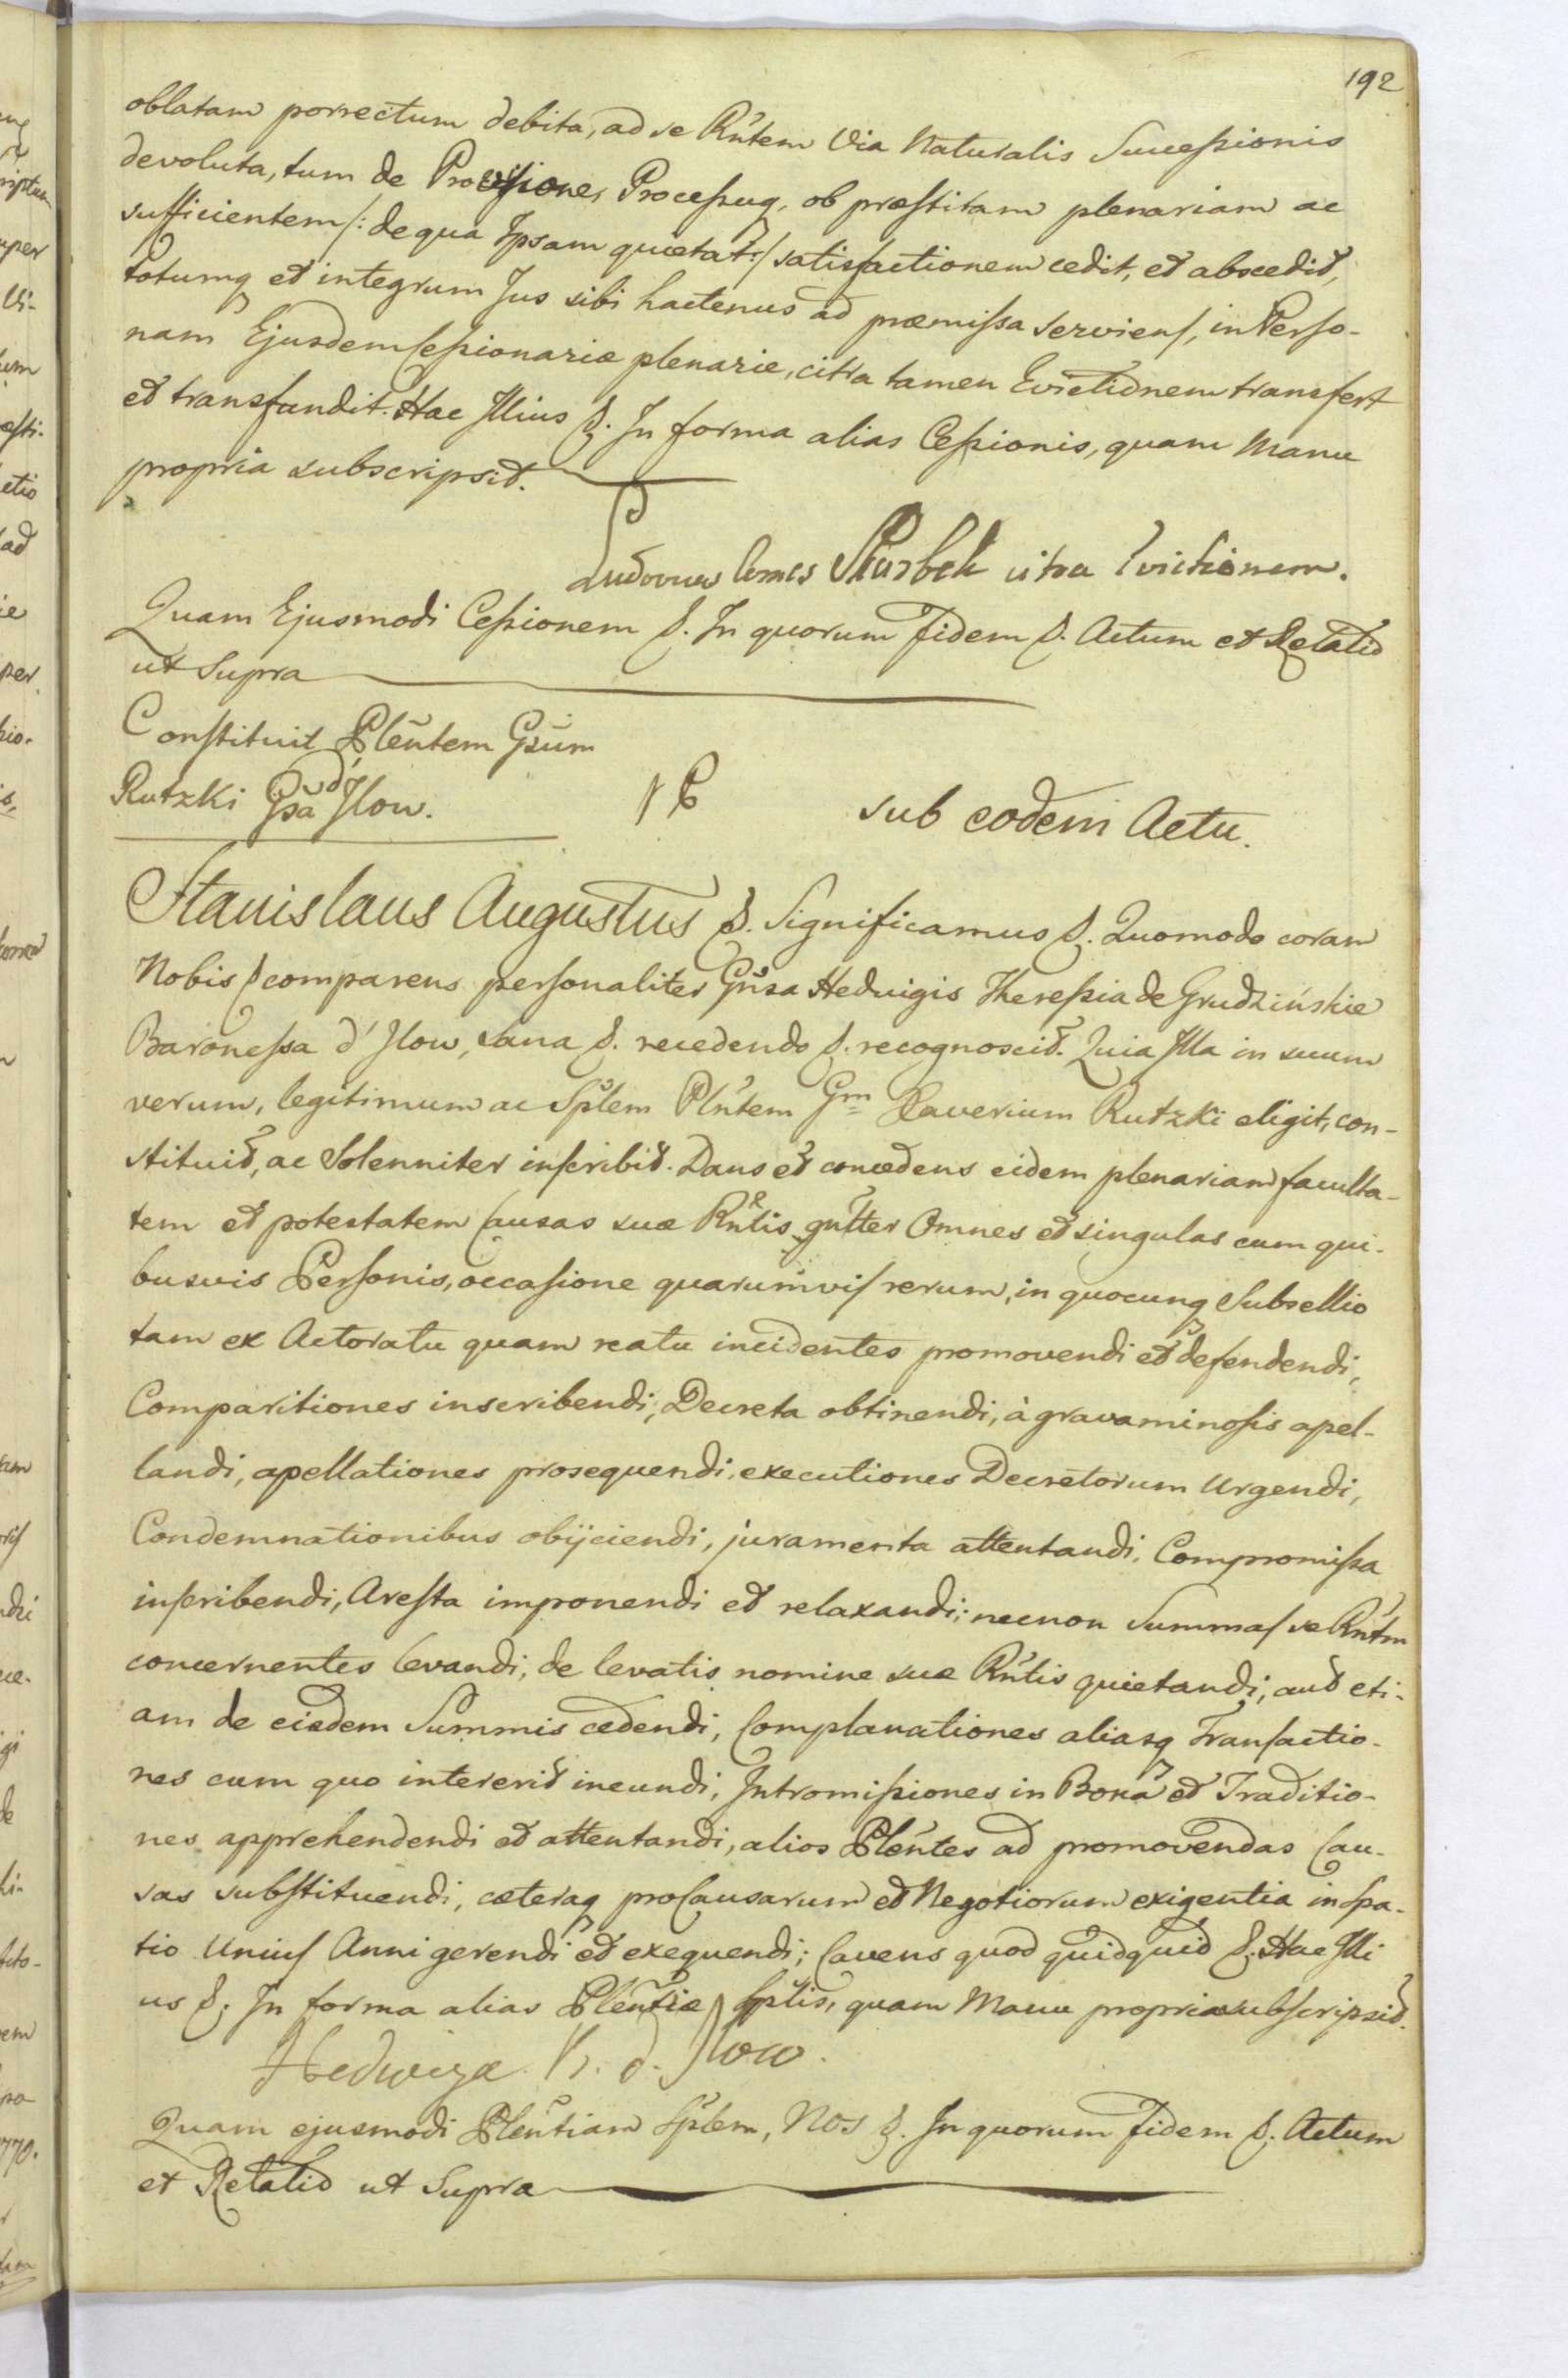 192
oblatam porrectum debita, ad se Rntem Via Naturalis Successionis
devoluta, tum de Provisione, Processuq, ob præstitam plenariam ac
sufficientem /: de qua Ipsam quietat :/ satisfactionem cedit, et abscedit,
totumq et integrum Jus sibi hactenus ad præmissa serviens, in Perso-
nam Ejusdem Cessionariæ plenarie, citra tamen Evictionem transfert
et transfundit. Hac Illius &. In forma alias Cessionis, quam Manu
propria subscripsit.
Ludovicus Comes Skarbek citra Evictionem.
Quam Ejusmodi Cessionem &. In quorum fidem &. Actum et Relatio
ut Supra
Constituit Plentem Gsum
Rutzki Gsa d' Ilow.
sub eodem Actu.
Stanislaus Augustus &. Significamus &. Quomodo coram
Nobis & comparens personaliter Gnsa Hedvigis Theressia de Grudzińskie
Baronessa d' Ilow, sana &. recedendo &. recognoscit. Quia Illa in suum
verum, legitimum ac Splem Plntem Gm Xaverium Rutzki eligit, con-
stituit, ac Solenniter inscribit. Dans et concedens eidem plenariam faculta-
tem et potestatem Causas suæ Rntis gnlter Omnes et singulas cum qui-
busvis Personis, occasione quarumvis rerum, in quocunq Subsellio
tam ex Actoratu quam reatu incidentes promovendi et defendendi,
Comparitiones inscribendi, Decreta obtinendi, à gravaminosis apel-
landi, apellationes prosequendi, executiones Decretorum Urgendi,
Condemnationibus obijciendi, juramenta attentandi, Compromissa
inscribendi, Aresta imponendi et relaxandi; necnon Summas se Rntm
concernentes levandi, de levatis nomine suæ Rntis quietandi, aut eti-
am de eisdem Summis cedendi, Complanationes aliasq Transactio-
nes cum quo intererit ineundi, Intromissiones in Bona et Traditio-
nes apprehendendi et attentandi, alios Plentes ad promovendas Cau-
sas substituendi, cæteraq pro Causarum et Negotiorum exigentia in spa-
tio Unius Anni gerendi et exequendi; Cavens quod quidquid &. Hac Illi
us &. In forma alias Plentiæ Splis, quam Manu propria subscripsit.
Hedwiga B. d. Ilow.
Quam ejusmodi Plentiam Splem, Nos &. In quorum fidem &. Actum
et Relatio ut Supra